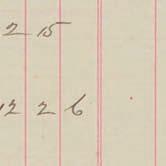 2 15
12 2 6